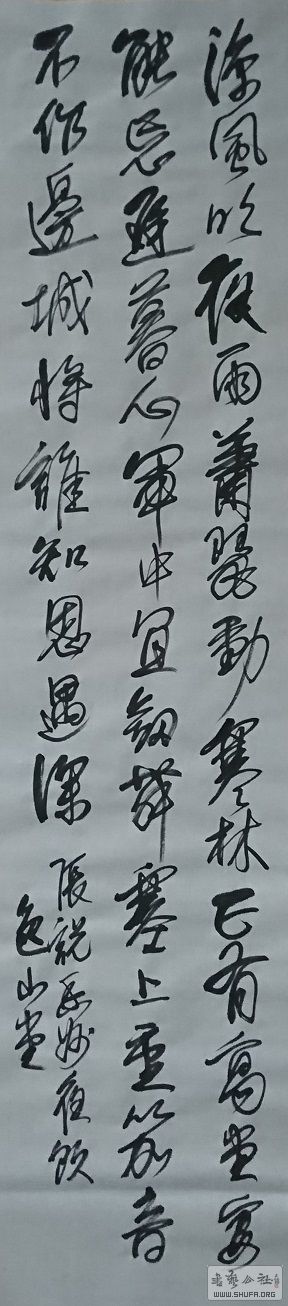 涼風吹夜雨蕭瑟動寒林正有高堂宴
能忘遲暮心軍中宜劍舞塞上重笳音
不作邊城將誰知恩遇深
張說幽州夜飲
山堂
書藝公社
WWW.SHUFA.ORG